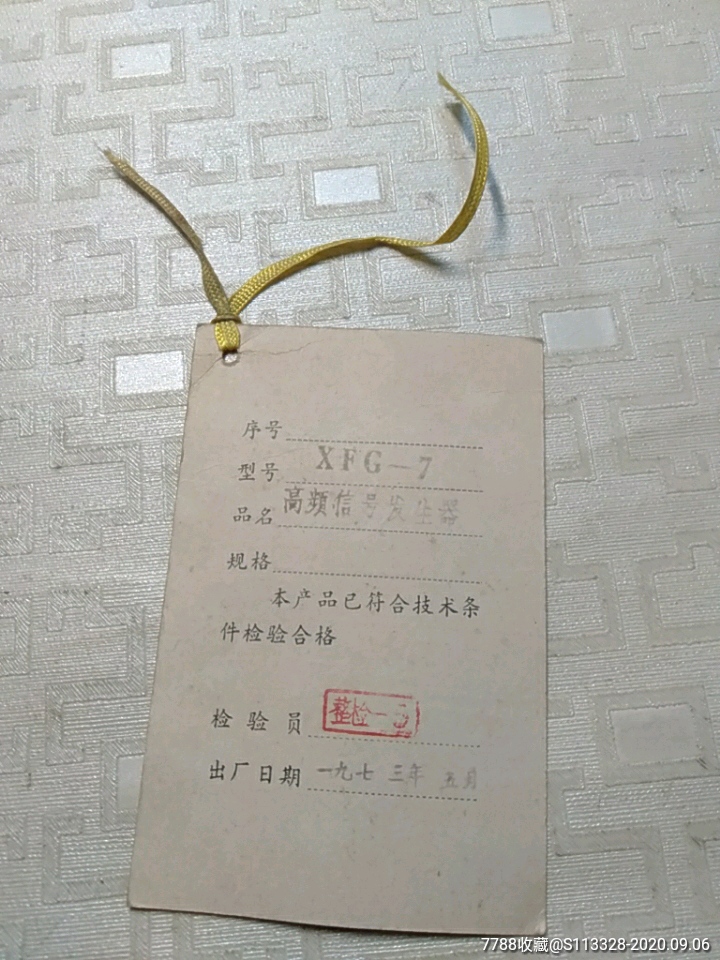 序号
型号 XFG-7
品名 高频信号发生器
规格
本产品已符合技术条
件检验合格
检验员 整检一
出厂日期 一九七三年 五月
7788收藏@S113328-2020.09.06